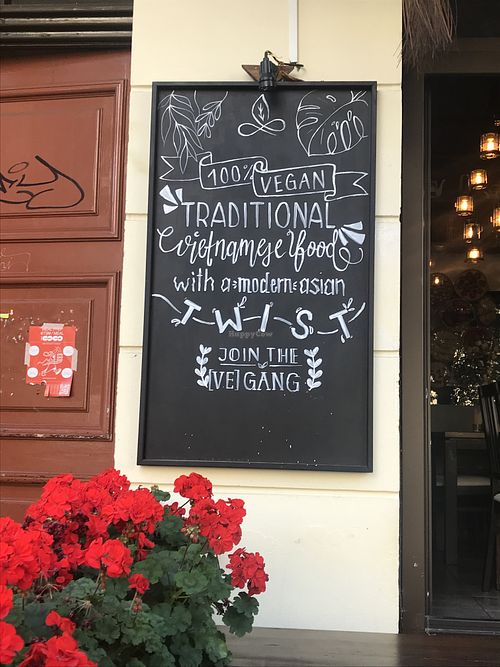 100% VEGAN
TRADITIONAL
vietnamese food
with a modern asian
TWIST
HappyCow
JOIN THE
[VE]GANG